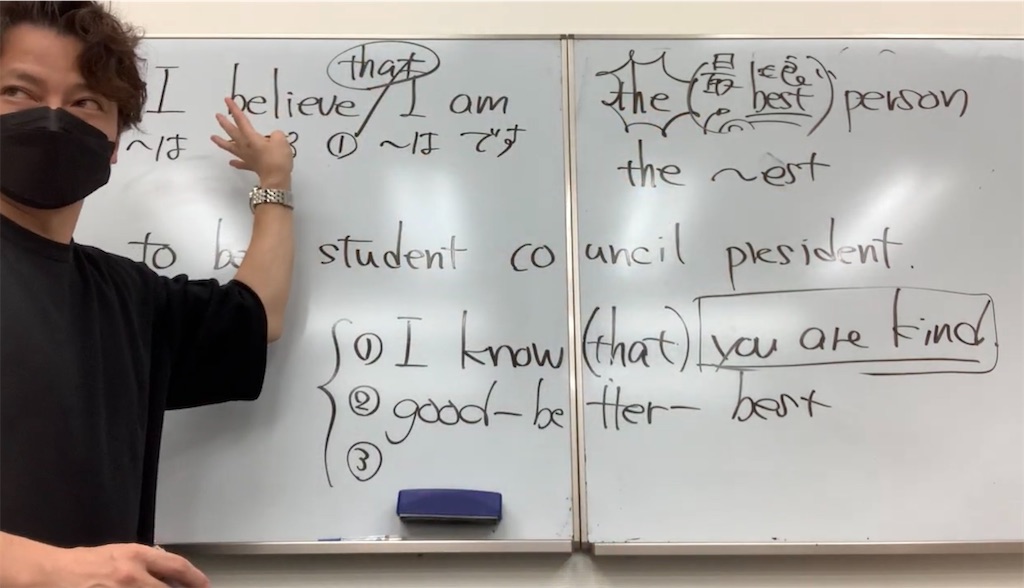 that
I believe I am the (最 best) person
～は ① ～は です
the ～est
to be student council president.
① I know (that) you are kind.
② good－better－best
③